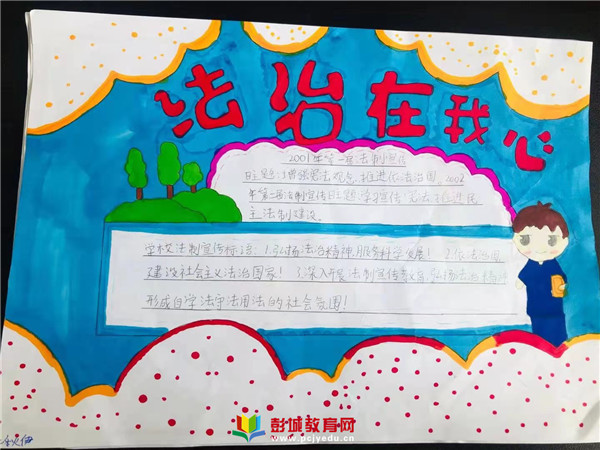 法治在我心
2001年第一届法制宣传
日主题:增强宪法观念,推进依法治国。2002
年第二届法制宣传日主题:学习宣传宪法,推进民
主法制建设。
学校法制宣传标语:1.弘扬法治精神,服务科学发展!2.依法治国
建设社会主义法治国家!3.深入开展法制宣传教育,弘扬法治精神
形成自学法守法用法的社会氛围!
彭城教育网
www.pcjyedu.cn